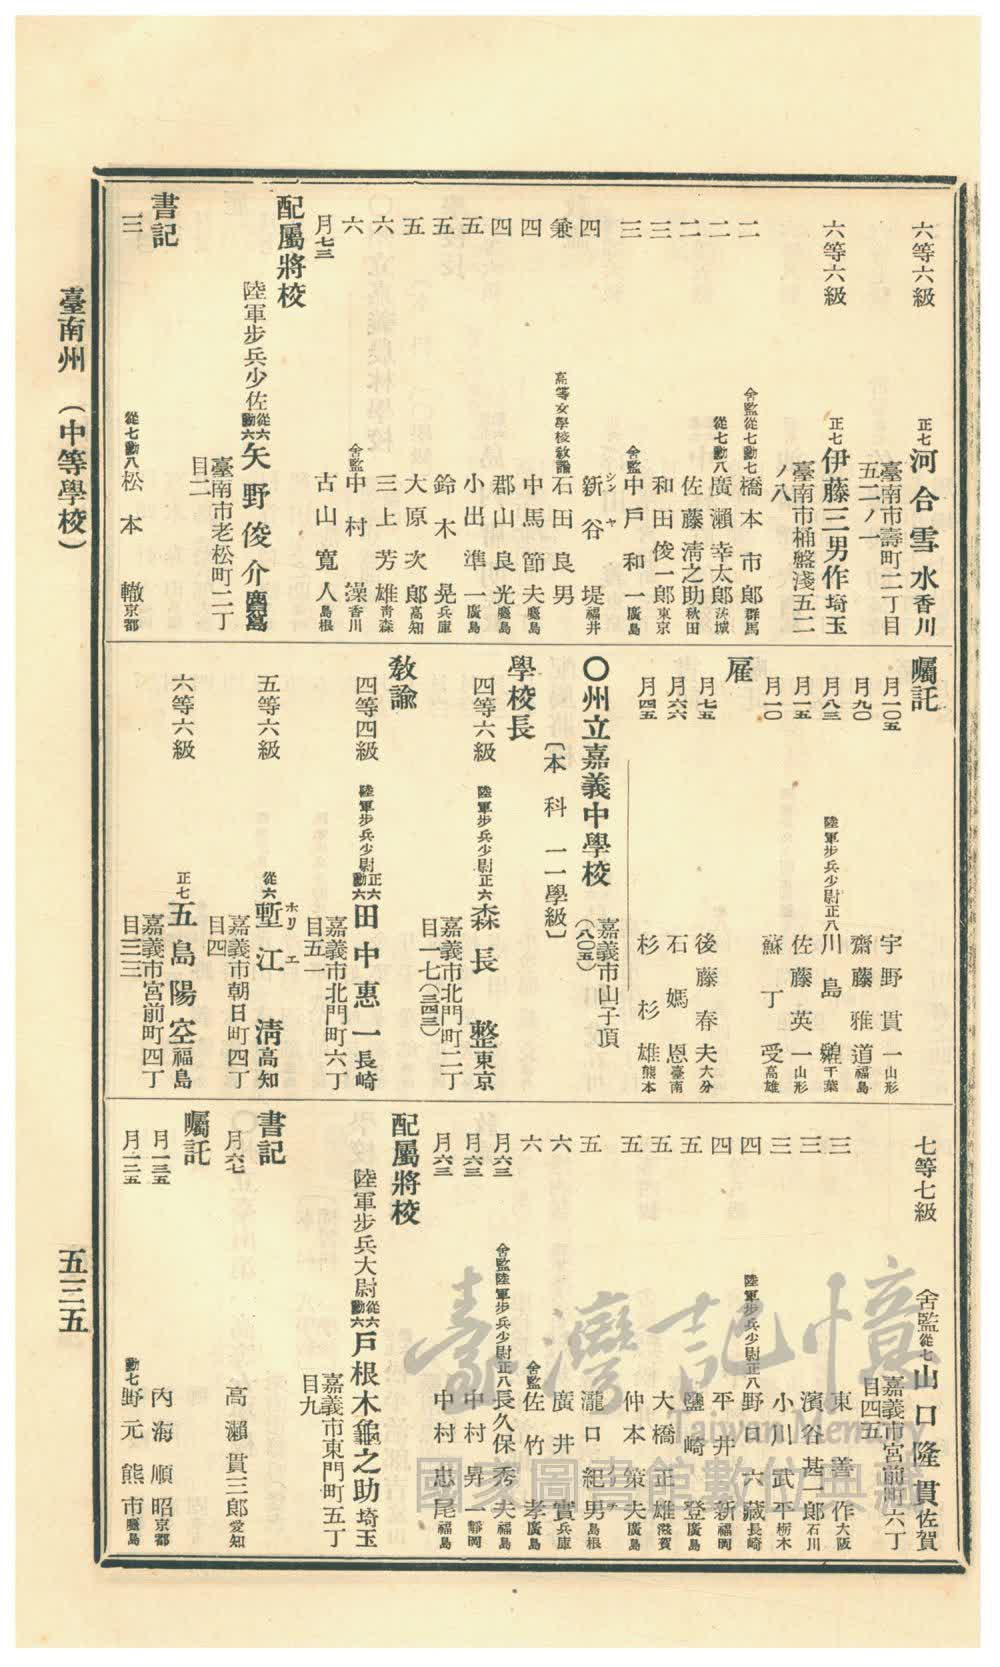 六等六級　正七河合雪水香川
臺南市壽町二丁目
五二ノ一
六等六級　正七伊藤三男作埼玉
臺南市桶盤淺五二
ノ八
二　舍監從七勳七橋本市郎群馬
二　從七勳八廣瀨幸太郎茨城
二　佐藤淸之助秋田
三　和田俊一郎東京
三　舍監中戶和一廣島
四　新谷堤福井
シンヤ
兼　高等女學校敎諭石田良男
四　中馬節夫鹿兒島
四　郡山良光鹿兒島
五　小出準一廣島
五　鈴木晃兵庫
五　大原次郎高知
六　三上芳雄靑森
六　舍監中村澡香川
月七三　古山寬人島根
配屬將校
陸軍步兵少佐從六勳六矢野俊介鹿兒島
臺南市老松町二丁
目二
書記
三　從七勳八松本轍京都
囑託
月一〇五　宇野貫一山形
月九〇　齋藤雅道福島
月八三　陸軍步兵少尉正八川島千葉
月一五　佐藤英一山形
月一〇　蘇丁受高雄
雇
月七五　後藤春夫大分
月六六　石媽恩臺南
月四五　杉杉雄熊本
〇州立嘉義中學校　嘉義市山子頂
（八〇五）
〔本科　一一學級〕
學校長
四等六級　陸軍步兵少尉正六森長整東京
嘉義市北門町二丁
目一七（三四三）
敎諭
四等四級　陸軍步兵少尉正六勳六田中惠一長崎
嘉義市北門町六丁
目五一
五等六級　從六塹江淸高知
ホリエ
嘉義市朝日町四丁
目四
六等六級　正七五島陽空福島
嘉義市宮前町四丁
目三三
七等七級　舍監從七山口隆貫佐賀
嘉義市宮前町六丁
目四五
三　東善作大阪
三　濱谷甚一郎石川
三　小川武平栃木
四　陸軍步兵少尉正八野口六藏長崎
四　平井新福岡
五　鹽崎登廣島
五　大橋正雄滋賀
五　仲本策夫廣島
五　瀧口紀男島根
六　廣井實兵庫
六　舍監佐竹孝廣島
月六三　舍監陸軍步兵少尉正八長久保秀夫福島
月六三　中村昇一靜岡
月六三　中村忠尾福島
配屬將校
陸軍步兵大尉從六勳六戶根木龜之助埼玉
嘉義市東門町五丁
目九
書記
月六七　高瀨貫三郎愛知
囑託
月一三五　內海順昭京都
月一二五　勳七野元熊市鹿兒島
臺南州（中等學校）
五三五
臺灣記憶
Taiwan Memory
國家圖書館數位典藏